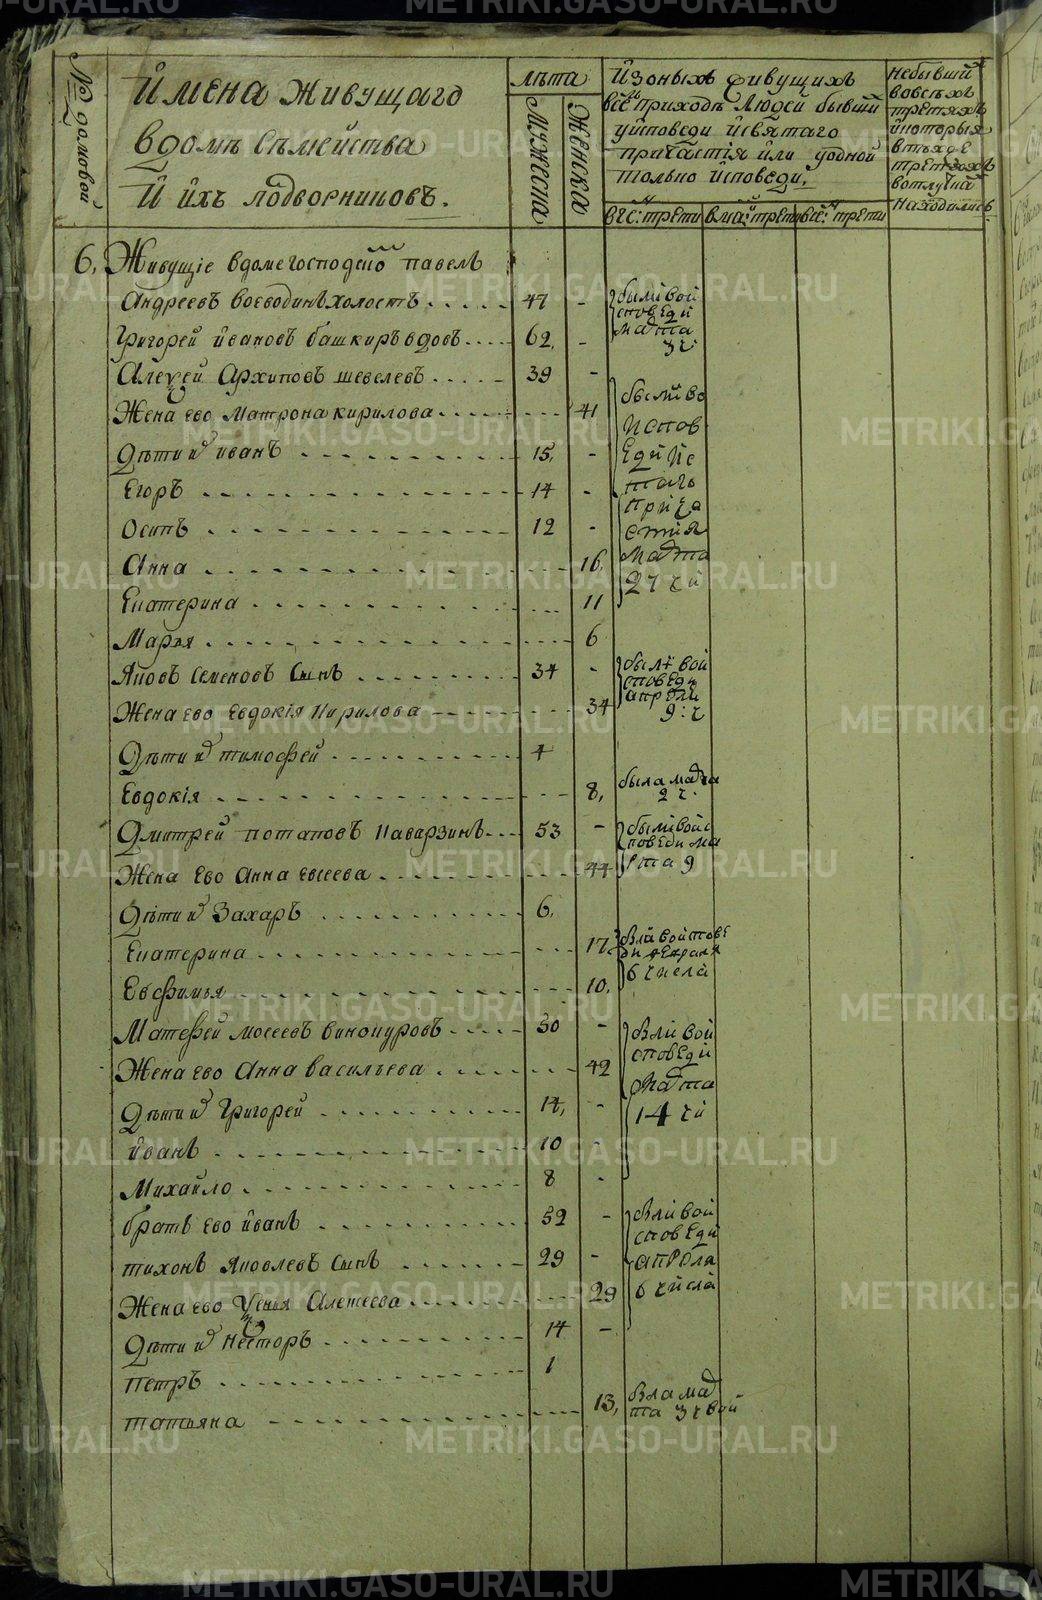 № домовой
Имена живущаго
вдоме Семейства
И ихъ подворниковъ.
лѣта
Мужеска
Женска
Изоныхъ живущихъ
всеъ приходѣ Людей бывши
уисповеди исвятаго
причастія или уодной
только исповеди.
вге: трети
вма: трети
все: трети
небывши
вовсехъ
третяхъ
и которыя
втехъ
третяхъ
вотлучки
находились
6. Живущіе вдоме господскомъ павелъ
Андреевъ воеводинъ холостъ 47 -
были вои
споведи
марта
3 ч
Григорей ивановъ башкиръ вдовъ 62. -
Алексей Архиповъ шевелевъ 39 -
Жена ево Матрона кирилова 41
были во
испов
еди и с
таго
прича
стия
марта
27 чи
Дети их иванъ 15. -
Егоръ 14 -
Осипъ 12 -
Анна 16.
Екатерина 11
Марья 6
Яковъ Семеновъ Сынъ 34 -
были вои
споведи
апрели
9: ч
Жена ево Евдокія Кирилова 34
Дети их тимофей 4
Евдокія 8.
была марта
2 ч.
Дмитрей потаповъ Каварзинъ 53 -
были вои
споведи ма
рта 9
Жена Ево Анна евсеева 44
Дети их Захаръ 6.
Екатерина 17.
были воиспове
ди февраля
6 числа
Евфимья 10.
Матфей мосеевъ винокуровъ 50 -
были вои
споведи
марта
14 чи
Жена ево Анна васильева 42
Дети их Григорей 14. -
иванъ 10 -
Михайло 8 -
братъ ево иванъ 52 -
были вои
споведи
апреля
6 числа
тихонъ Яковлевъ Сынъ 29 -
Жена ево Устинья Алексеева 29
Дети их несторъ 14 -
петръ 1
татьяна 13.
была мар
та 3 ч вои
METRIKI.GASO-URAL.RU